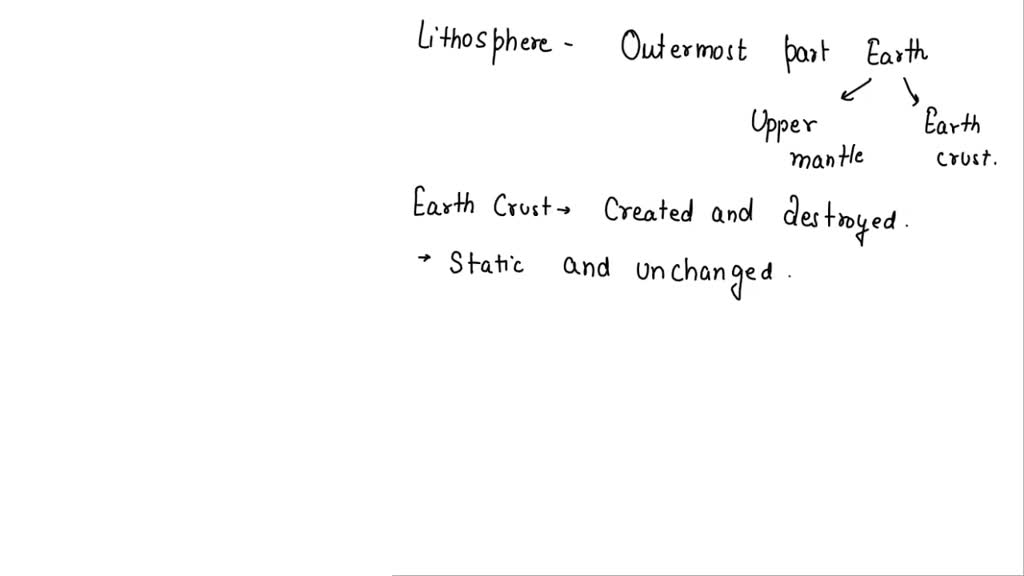 Lithosphere - Outermost part Earth
Upper mantle
Earth crust.
Earth Crust → Created and destroyed.
→ Static and unchanged.